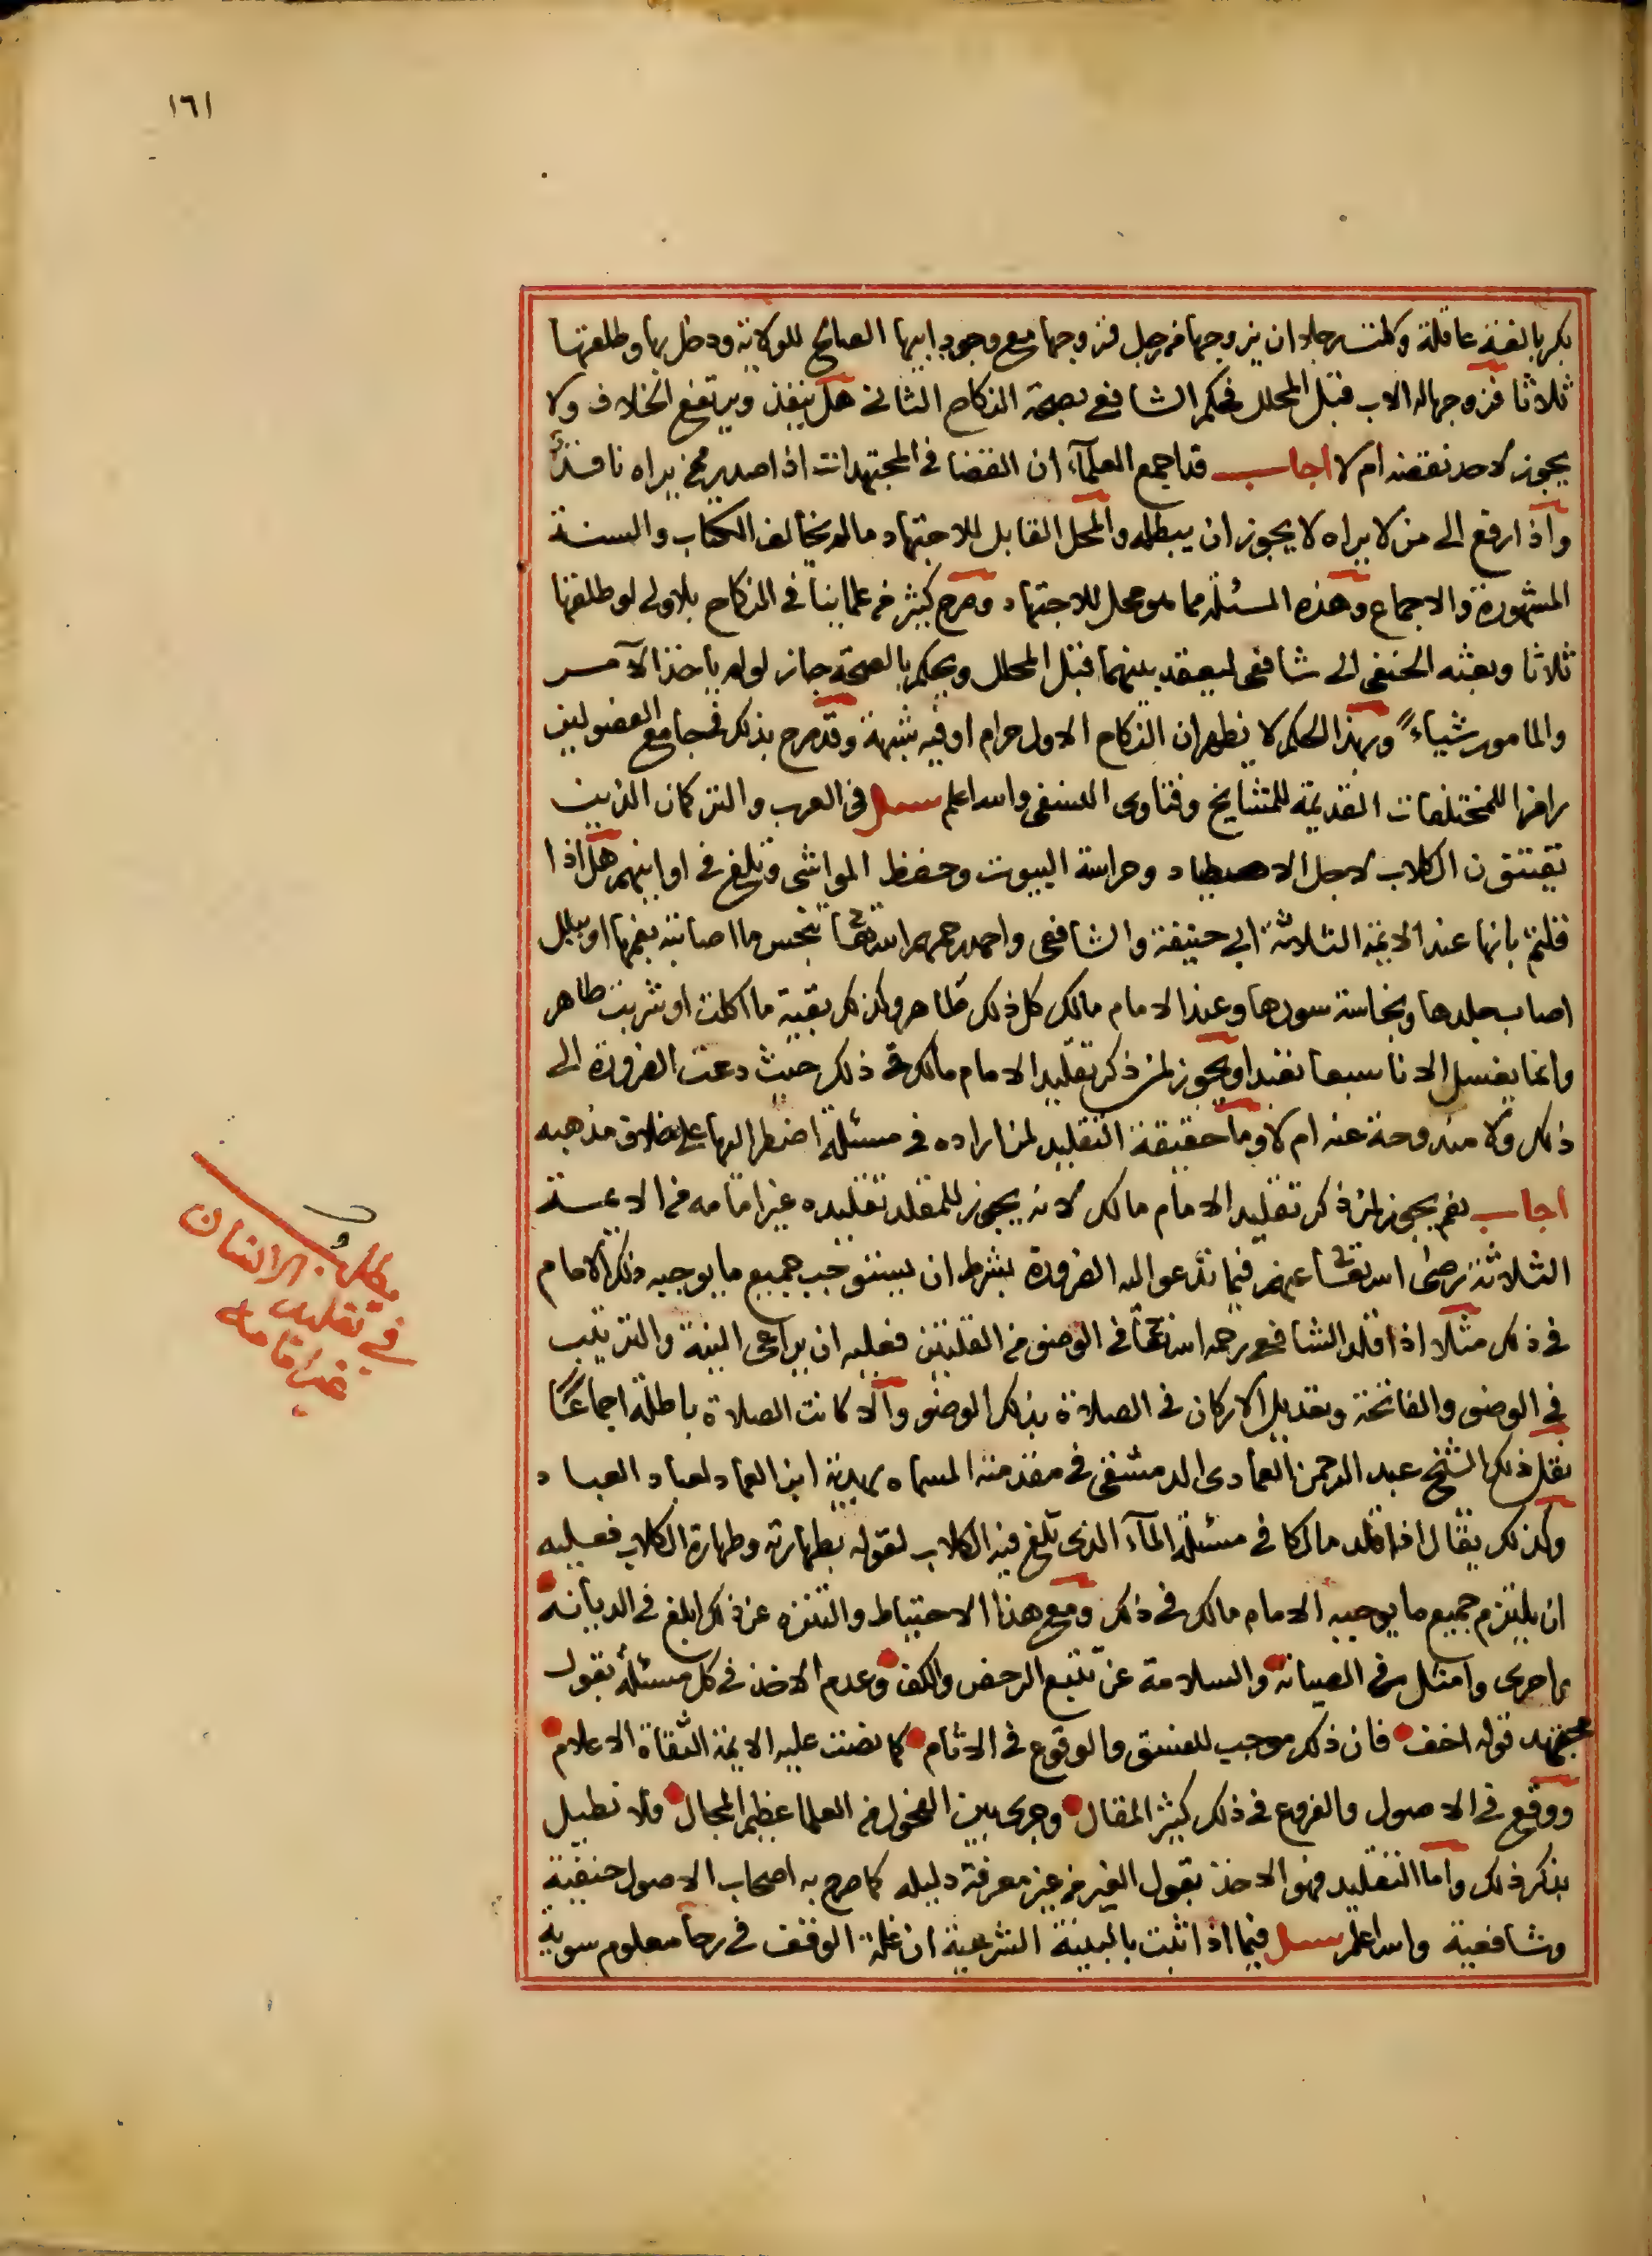 ١٦١
بكر بالغة عاقلة وكلت رجلا ان يزوجها من رجل فزوجها مع وجود ابيها الصالح للولاية ودخل بها وطلقها
ثلاثا فزوجها له الاب قبل المحلل فحكم الشافعي بصحة النكاح الثاني هل ينفذ ويرتفع الخلاف ولا
يجوز لاحد نقضه ام لا اجاب قد اجمع العلماء ان القضا في المجتهدات اذا صدر ممن يراه نافذ
واذا رفع الى من لا يراه لا يجوز ان يبطله والمحل القابل للاجتهاد ما لم يخالف الكتاب والسنة
المشهورة والاجماع وهذه المسئلة مما هو محل للاجتهاد وصرح كثير من علمائنا في النكاح بلا ولي لو طلقها
ثلاثا وبعثه الحنفي الى شافعي ليعقد بينهما قبل المحلل ويحكم بالصحة جاز لو لم ياخذ الآمر
والمامور شياء وبهذا الحكم لا يظهر ان النكاح الاول حرام او فيه شبهة وقد صرح بذلك في جامع الفصولين
رامزا للمختلفات القديمة للمشايخ وفتاوى النسفي والله اعلم سئل في العرب والتركمان الذين
يقتنون الكلاب لاجل الاصطياد وحراسة البيوت وحفظ المواشي وتلغ في اوانيهم هل اذا
قلتم بانها عند الائمة الثلاثة ابي حنيفة والشافعي واحمد رحمهم الله تعالى تنجس ما اصابته بفمها او ببلل
اصاب جلدها ونجاسة سورها وعند الامام مالك كل ذلك طاهر وكذلك بقية ما اكلت او شربت طاهر
وانما يغسل الانا سبعا تعبدا ويجوز لمن ذكر تقليد الامام مالك في ذلك حيث دعت الضرورة الى
ذلك ولا مندوحة عنه ام لا وما حقيقة التقليد لمن اراده في مسئلة اضطر اليها على خلاف مذهبه
اجاب نعم يجوز لمن ذكر تقليد الامام مالك لانه يجوز للمقلد تقليده غير امامه من الائمة
الثلاثة رضى الله تعالى عنهم فيما تدعو اليه الضرورة بشرط ان يستوجب جميع ما يوجبه ذلك الامام
في ذلك مثلا اذا قلد الشافعي رحمه الله تعالى في الوضو من القلتين فعليه ان يراعى النية والترتيب
في الوضو والفاتحة وتعديل الاركان في الصلاة بذلك الوضو والا كانت الصلاة باطلة اجماعا
نقل ذلك الشيخ عبد الرحمن العمادى الدمشقي في مقدمته المسماه بهدية ابن العماد لعباد العباد
وكذلك يقال اذا قلد مالكا في مسئلة المآء الذى تلغ فيه الكلاب لقوله بطهارته وطهارة الكلاب فعليه
ان يلتزم جميع ما يوجبه الامام مالك في ذلك ومع هذا الاحتياط والتنزه عن ذلك ابلغ في الديانة
واحرى وامثل في الصيانة والسلامة عن تتبع الرخص والكف وعدم الاخذ في كل مسئلة بقول
مجتهد قوله اخف فان ذلك موجب للفسق والوقوع في الاثام كما نصت عليه الائمة الثقاة الاعلام
ووقع في الاصول والفروع في ذلك كثير المقال وجرى بين الفحول من العلما عظيم المجال ولا نطيل
بذكر ذلك واما التقليد فهو الاخذ بقول الغير من غير معرفة دليله كما صرح به اصحاب الاصول حنفية
وشافعية والله اعلم سئل فيما اذا ثبت بالبينة الشرعية ان غلة الوقف في رحا معلوم سوية
مطلب
الانسان
في تقليد
غير امامه